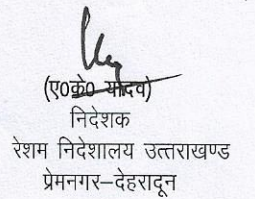 (ए0के0 यादव)
निदेशक
रेशम निदेशालय उत्तराखण्ड
प्रेमनगर–देहरादून